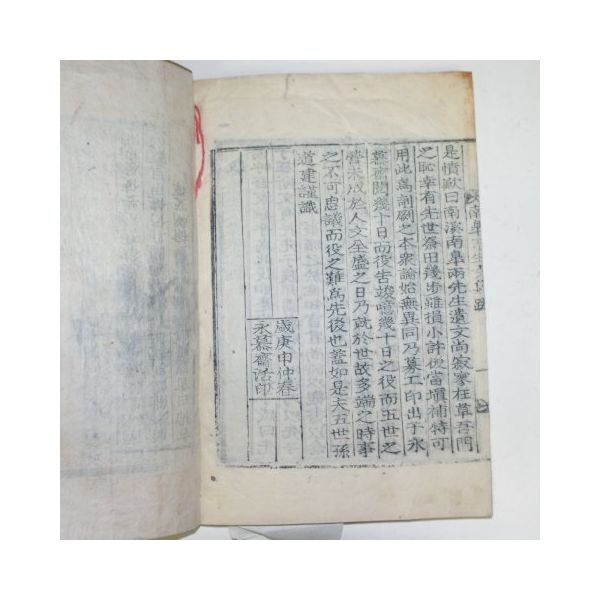 是憤歎曰南溪南皐兩先生遺文尚寂寥在草吾門
之恥幸有先世祭田幾步雖損小許後當塡補特可
用此爲剞劂之本衆論始無異同乃募工印出于永
慕齋閱幾十日而役告竣噫幾十日之役而五世之
營未成於人文全盛之日乃就於世故多端之時事
之不可思議而役之難爲先後也蓋如是夫五世孫
道建謹識
歲庚申仲春
永慕齋活印